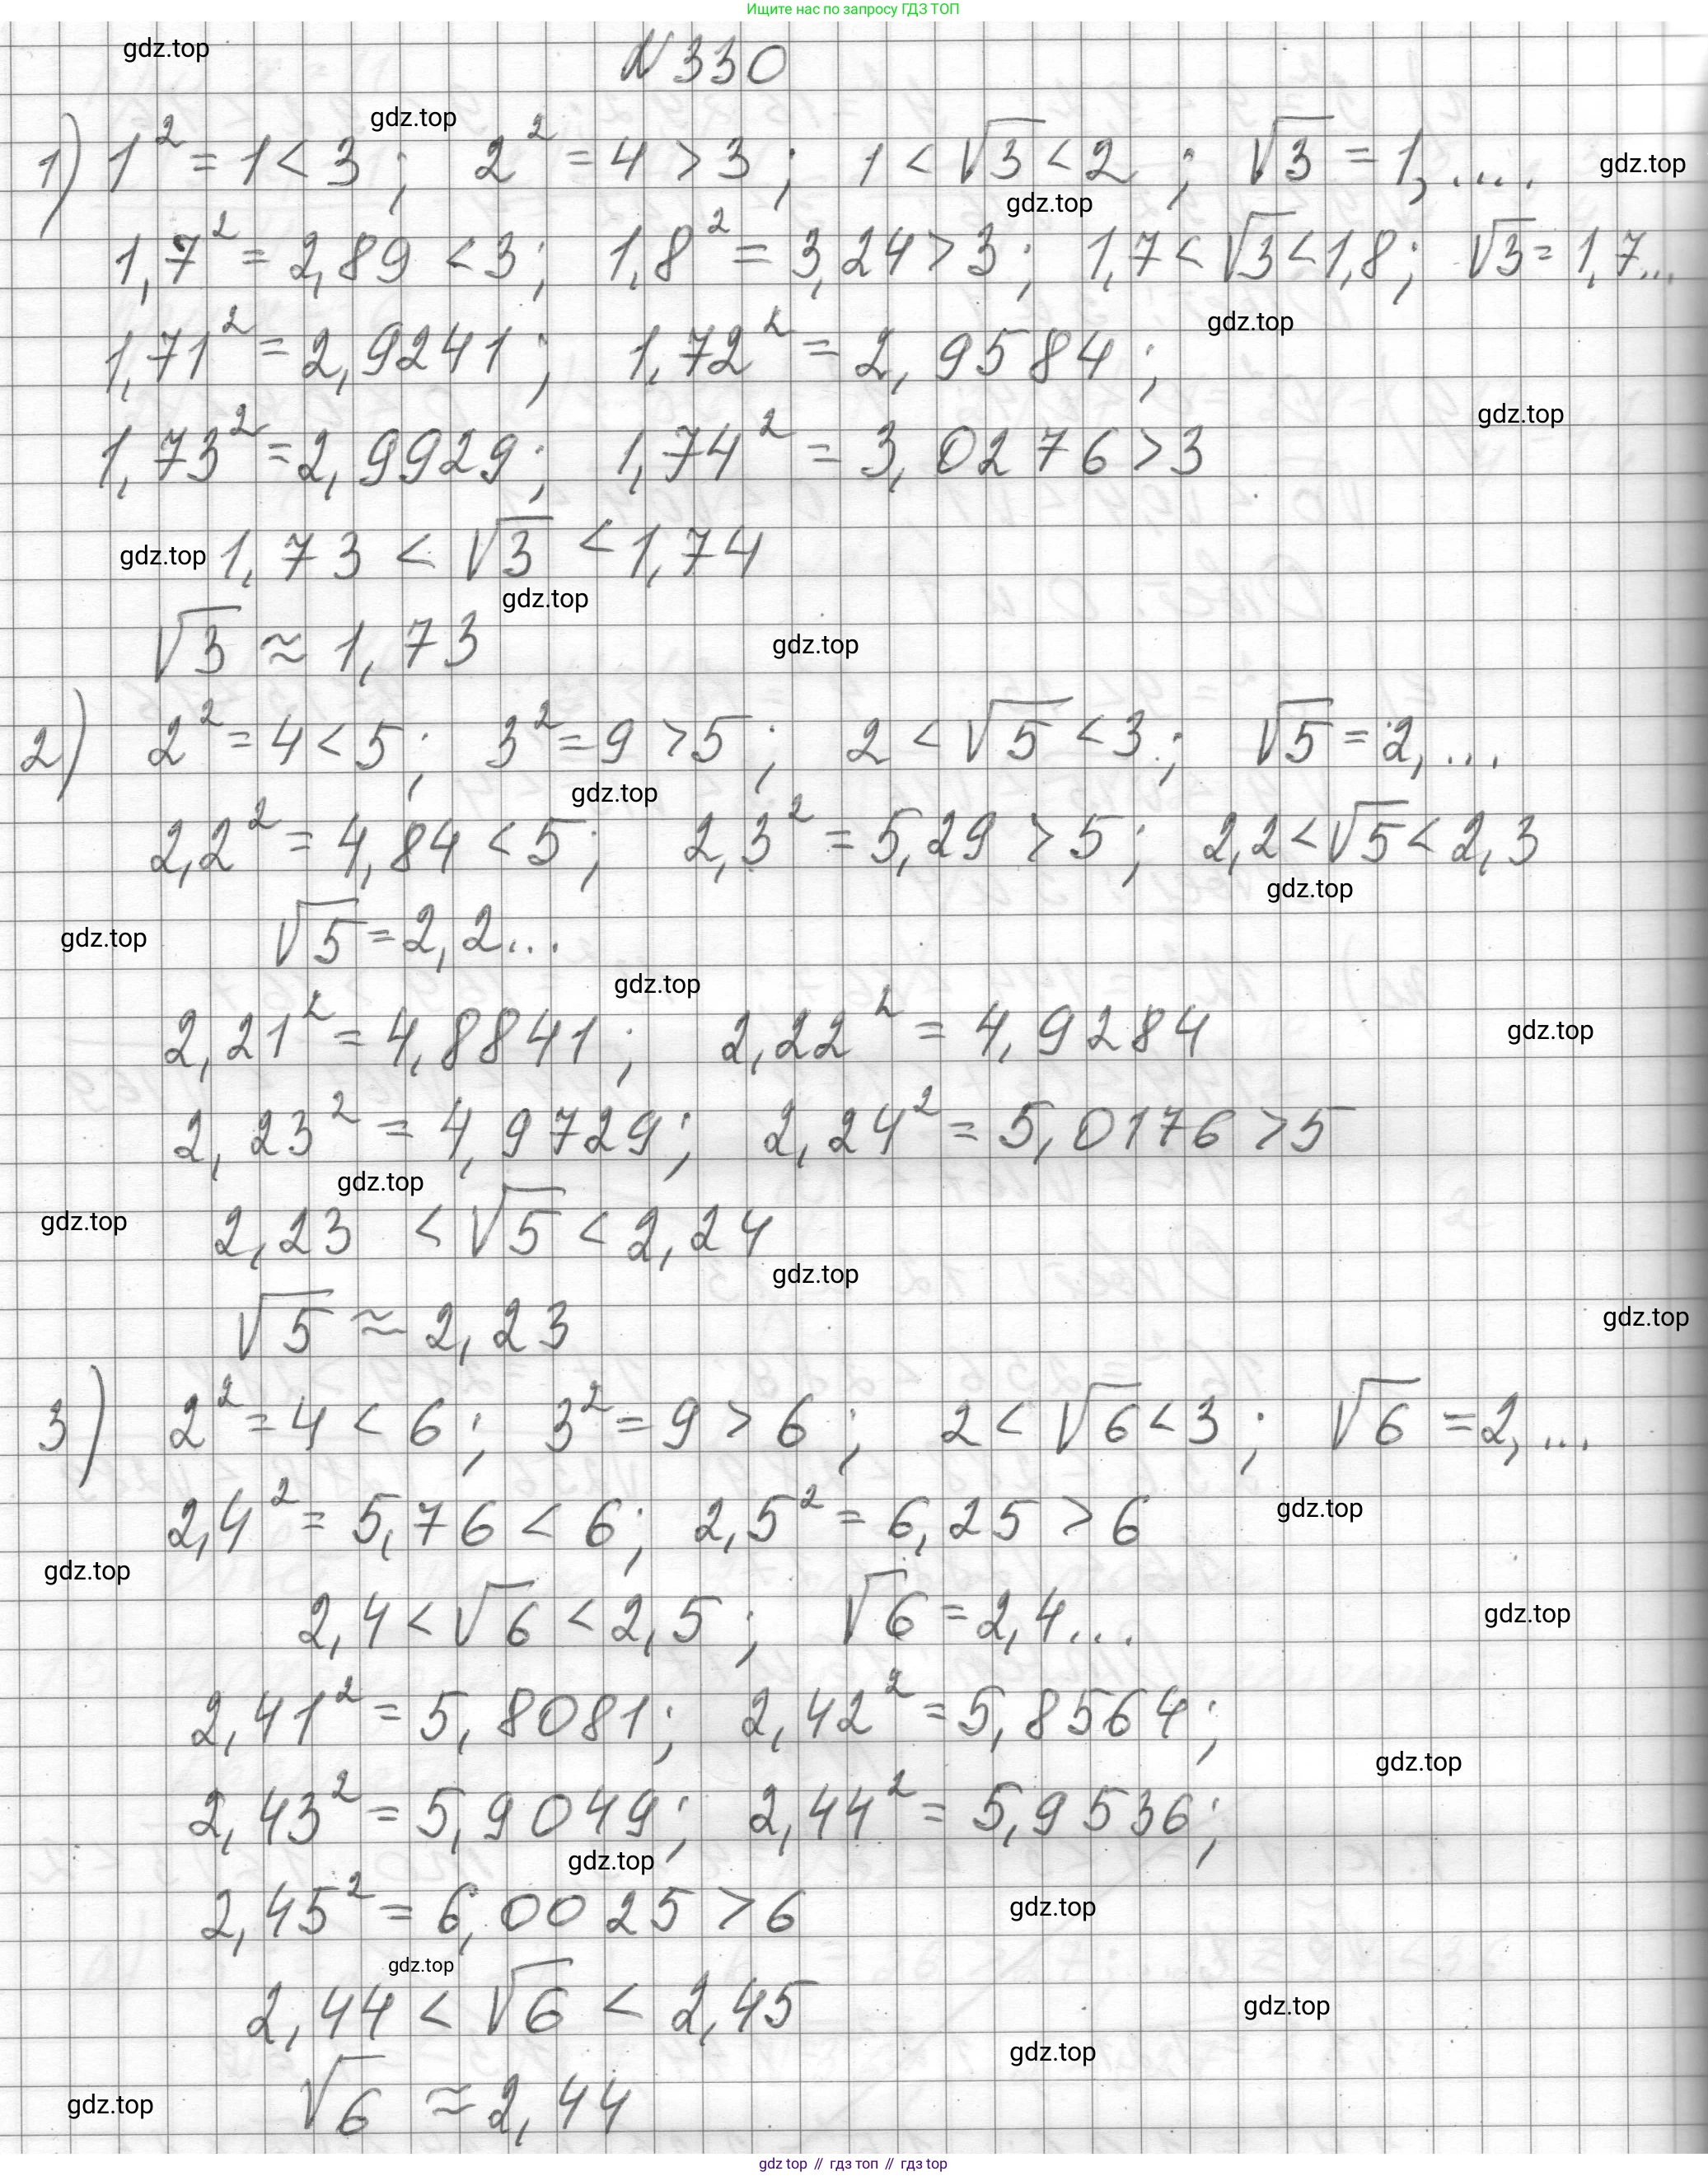 Ищите нас по запросу ГДЗ ТОП
gdz.top
N 330
gdz.top
1) 1² = 1 < 3 ; 2² = 4 > 3 ; 1 < √3 < 2 ; √3 = 1,....
gdz.top
gdz.top
1,7² = 2,89 < 3; 1,8² = 3,24 > 3; 1,7 < √3 < 1,8; √3 = 1,7...
gdz.top
1,71² = 2,9241 ; 1,72² = 2,9584 ;
gdz.top
1,73² = 2,9929; 1,74² = 3,0276 > 3
gdz.top 1,73 < √3 < 1,74
gdz.top
√3 ≈ 1,73
gdz.top
2) 2² = 4 < 5; 3² = 9 > 5 ; 2 < √5 < 3 ; √5 = 2,...
gdz.top
2,2² = 4,84 < 5 ; 2,3² = 5,29 > 5 ; 2,2 < √5 < 2,3
gdz.top
gdz.top √5 = 2,2...
gdz.top
2,21² = 4,8841 ; 2,22² = 4,9284
gdz.top
2,23² = 4,9729; 2,24² = 5,0176 > 5
gdz.top
gdz.top 2,23 < √5 < 2,24
gdz.top
√5 ≈ 2,23
gdz.top
3) 2² = 4 < 6 ; 3² = 9 > 6 ; 2 < √6 < 3 ; √6 = 2,...
gdz.top
2,4² = 5,76 < 6; 2,5² = 6,25 > 6
gdz.top
2,4 < √6 < 2,5 ; √6 = 2,4...
gdz.top
2,41² = 5,8081; 2,42² = 5,8564;
gdz.top
2,43² = 5,9049; 2,44² = 5,9536;
gdz.top
2,45² = 6,0025 > 6
gdz.top
gdz.top
2,44 < √6 < 2,45
gdz.top
gdz.top
√6 ≈ 2,44
gdz.top
gdz top // гдз топ // гдз top